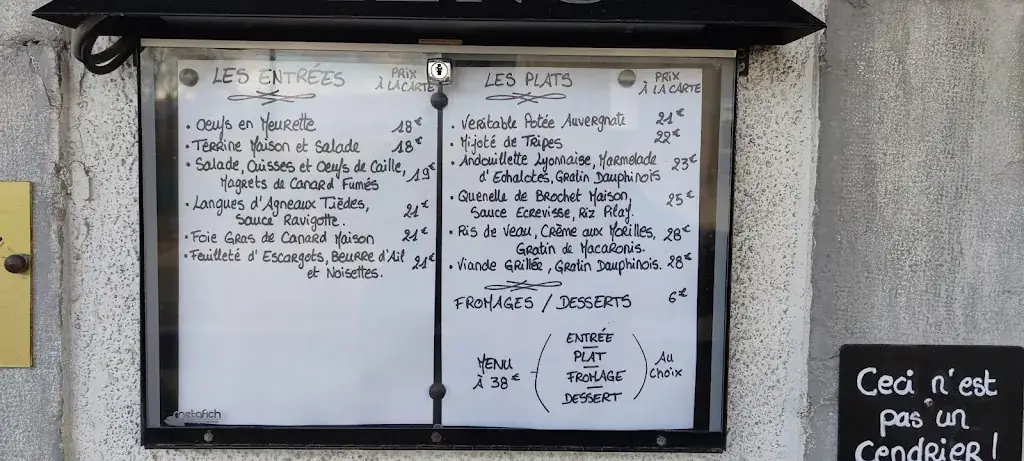 LES ENTRÉES
PRIX
À LA CARTE
• Oeufs en Meurette 18€
• Terrine Maison et Salade 18€
• Salade, Cuisses et Oeufs de Caille, 19€
Magrets de Canard Fumés
• Langues d'Agneaux Tièdes, 21€
Sauce Ravigotte.
• Foie Gras de Canard Maison 21€
• Feuilleté d'Escargots, Beurre d'Ail 21€
et Noisettes.
metafich
LES PLATS
PRIX
À LA CARTE
• Veritable Potée Auvergnate 21€
• Mijoté de Tripes 22€
• Andouillette Lyonnaise, Marmelade 23€
d'Echalotes, Gratin Dauphinois
• Quenelle de Brochet Maison, 25€
Sauce Ecrevisse, Riz Pilaf.
• Ris de Veau, Crème aux Morilles, 28€
Gratin de Macaronis.
• Viande Grillée, Gratin Dauphinois. 28€
FROMAGES / DESSERTS 6€
MENU
À 38€
ENTRÉE
PLAT
FROMAGE
DESSERT
Au
Choix
Ceci n'est
pas un
Cendrier !